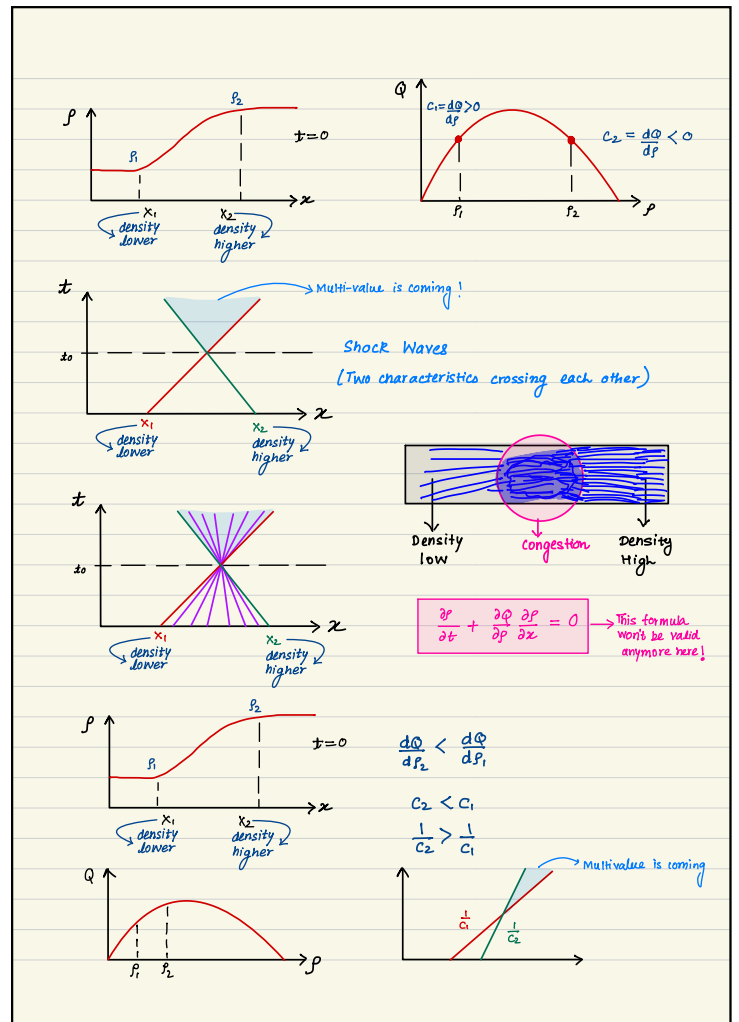 ρ
ρ₁
ρ₂
t=0
x
x₁
x₂
density
lower
density
higher
Q
C₁ = dQ/dρ > 0
C₂ = dQ/dρ < 0
ρ₁
ρ₂
ρ
t
t₀
Multi-value is coming!
Shock Waves
(Two characteristics crossing each other)
x₁
x₂
x
density
lower
density
higher
Density
low
Congestion
Density
High
t
t₀
x₁
x₂
x
density
lower
density
higher
∂ρ/∂t + ∂Q/∂ρ ∂ρ/∂x = 0
This formula
won't be valid
anymore here!
ρ
ρ₁
ρ₂
t=0
x
x₁
x₂
density
lower
density
higher
dQ/dρ₂ < dQ/dρ₁
C₂ < C₁
1/C₂ > 1/C₁
Q
ρ₁
ρ₂
ρ
Multivalue is coming
1/C₁
1/C₂